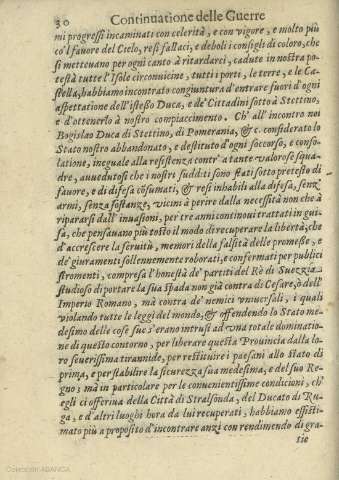 30 Continuatione delle Guerre
mi progressi incaminati con celerità, e con vigore, e molto più
co'l fauore del Cielo, resi fallaci, e deboli i consigli di coloro, che
si metteuano per ogni canto à ritardarci, cadute in nostra po-
testà tutte l'Isole circonuicine, tutti i porti, le terre, e le Ca-
stella, habbiamo incontrato congiuntura d'entrare fuori d'ogni
aspettatione dell'istesso Duca, e de' Cittadini sotto à Stettino,
e d'ottenerlo à nostro compiaccimento. Ch'all'incontro noi
Bogislao Duca di Stettino, di Pomerania, & c. considerato lo
Stato nostro abbandonato, e destituto d'ogni soccorso, e conso-
latione, ineguale alla resistenza contr'a tante valorose squa-
dre, auuedutosi che i nostri sudditi sono stati sotto pretesto di
fauore, e di difesa cōsumati, & resi inhabili alla difesa, senz'
armi, senza sostanze, vicini à perire dalla necessità non che à
ripararsi dall'inuasioni, per tre anni continoui trattati in gui-
sa, che pensauano più tosto il modo di recuperare la libertà, che
d'accrescere la seruitù, memori della falsità delle promesse, e
de' giuramenti sollennemente roborati, e confermati per publici
stromenti, compresa l'honestà de' partiti del Rè di Suezzia
studioso di portare la sua spada non già contra di Cesare, ò dell'
Imperio Romano, mà contra de' nemici vniuersali, i quali
violando tutte le leggi del mondo, & offendendo lo Stato me-
desimo delle cose sue s'erano intrusi ad vna totale dominatio-
ne di questo contorno, per liberare questa Prouincia dalla lo-
ro seuerissima tirannide, per restituire i paesani allo stato di
prima, e per stabilire la sicurezza sua medesima, e del suo Re-
gno; mà in particolare per le conuenientissime condicioni, ch'
egli ci offeriua della Città di Stralsonda, del Ducato di Ru-
ga, e d'altri luoghi hora da lui recuperati, habbiamo essisti-
mato più a proposito d'incontrare anzi con rendimento di gra-
tie
Colección ABANCA